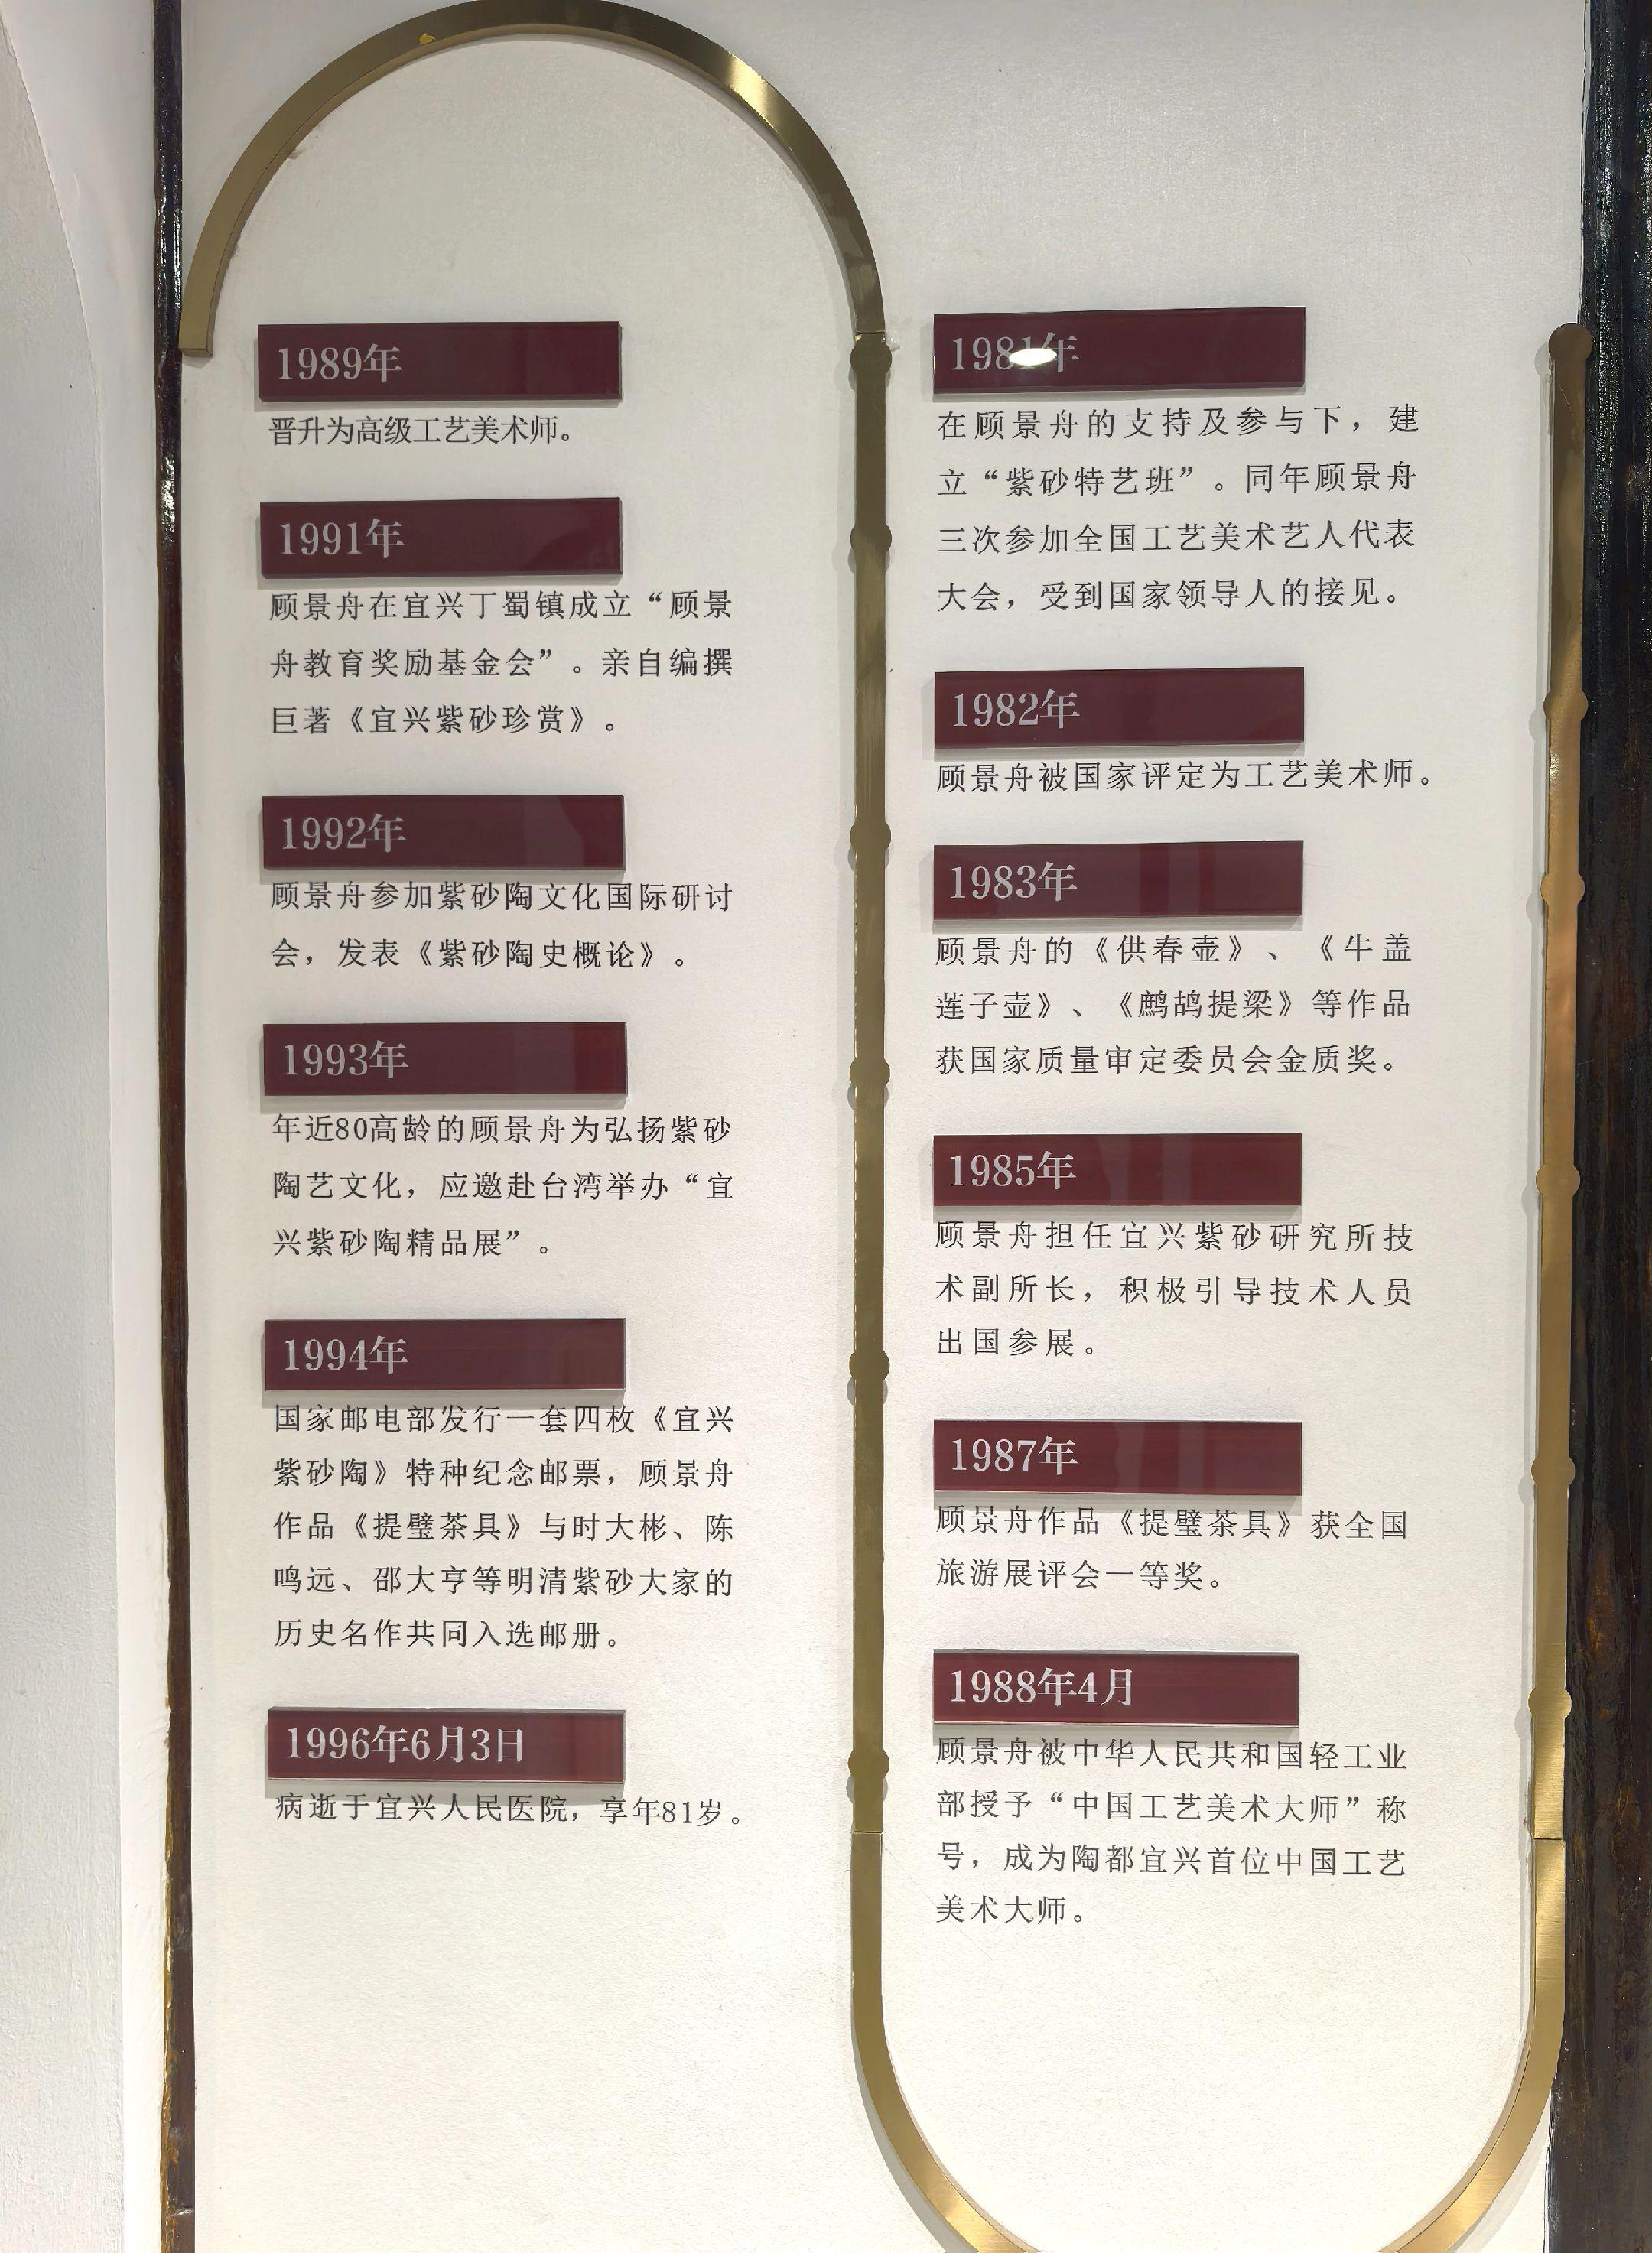 1981年
在顾景舟的支持及参与下，建
立“紫砂特艺班”。同年顾景舟
三次参加全国工艺美术艺人代表
大会，受到国家领导人的接见。
1982年
顾景舟被国家评定为工艺美术师。
1983年
顾景舟的《供春壶》、《牛盖
莲子壶》、《鹧鸪提梁》等作品
获国家质量审定委员会金质奖。
1985年
顾景舟担任宜兴紫砂研究所技
术副所长，积极引导技术人员
出国参展。
1987年
顾景舟作品《提璧茶具》获全国
旅游展评会一等奖。
1988年4月
顾景舟被中华人民共和国轻工业
部授予“中国工艺美术大师”称
号，成为陶都宜兴首位中国工艺
美术大师。
1989年
晋升为高级工艺美术师。
1991年
顾景舟在宜兴丁蜀镇成立“顾景
舟教育奖励基金会”。亲自编撰
巨著《宜兴紫砂珍赏》。
1992年
顾景舟参加紫砂陶文化国际研讨
会，发表《紫砂陶史概论》。
1993年
年近80高龄的顾景舟为弘扬紫砂
陶艺文化，应邀赴台湾举办“宜
兴紫砂陶精品展”。
1994年
国家邮电部发行一套四枚《宜兴
紫砂陶》特种纪念邮票，顾景舟
作品《提璧茶具》与时大彬、陈
鸣远、邵大亨等明清紫砂大家的
历史名作共同入选邮册。
1996年6月3日
病逝于宜兴人民医院，享年81岁。